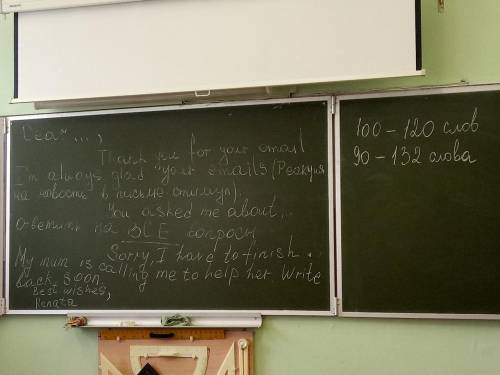 Dear ... ,
Thank you for your email
I'm always glad your emails (Реакция
на новость в письме-стимул).
You asked me about...
Ответить на ВСЕ вопросы
Sorry, I have to finish ..
My mum is calling me to help her Write
back soon.
Best wishes,
Renata
100 – 120 слов
90 – 132 слова